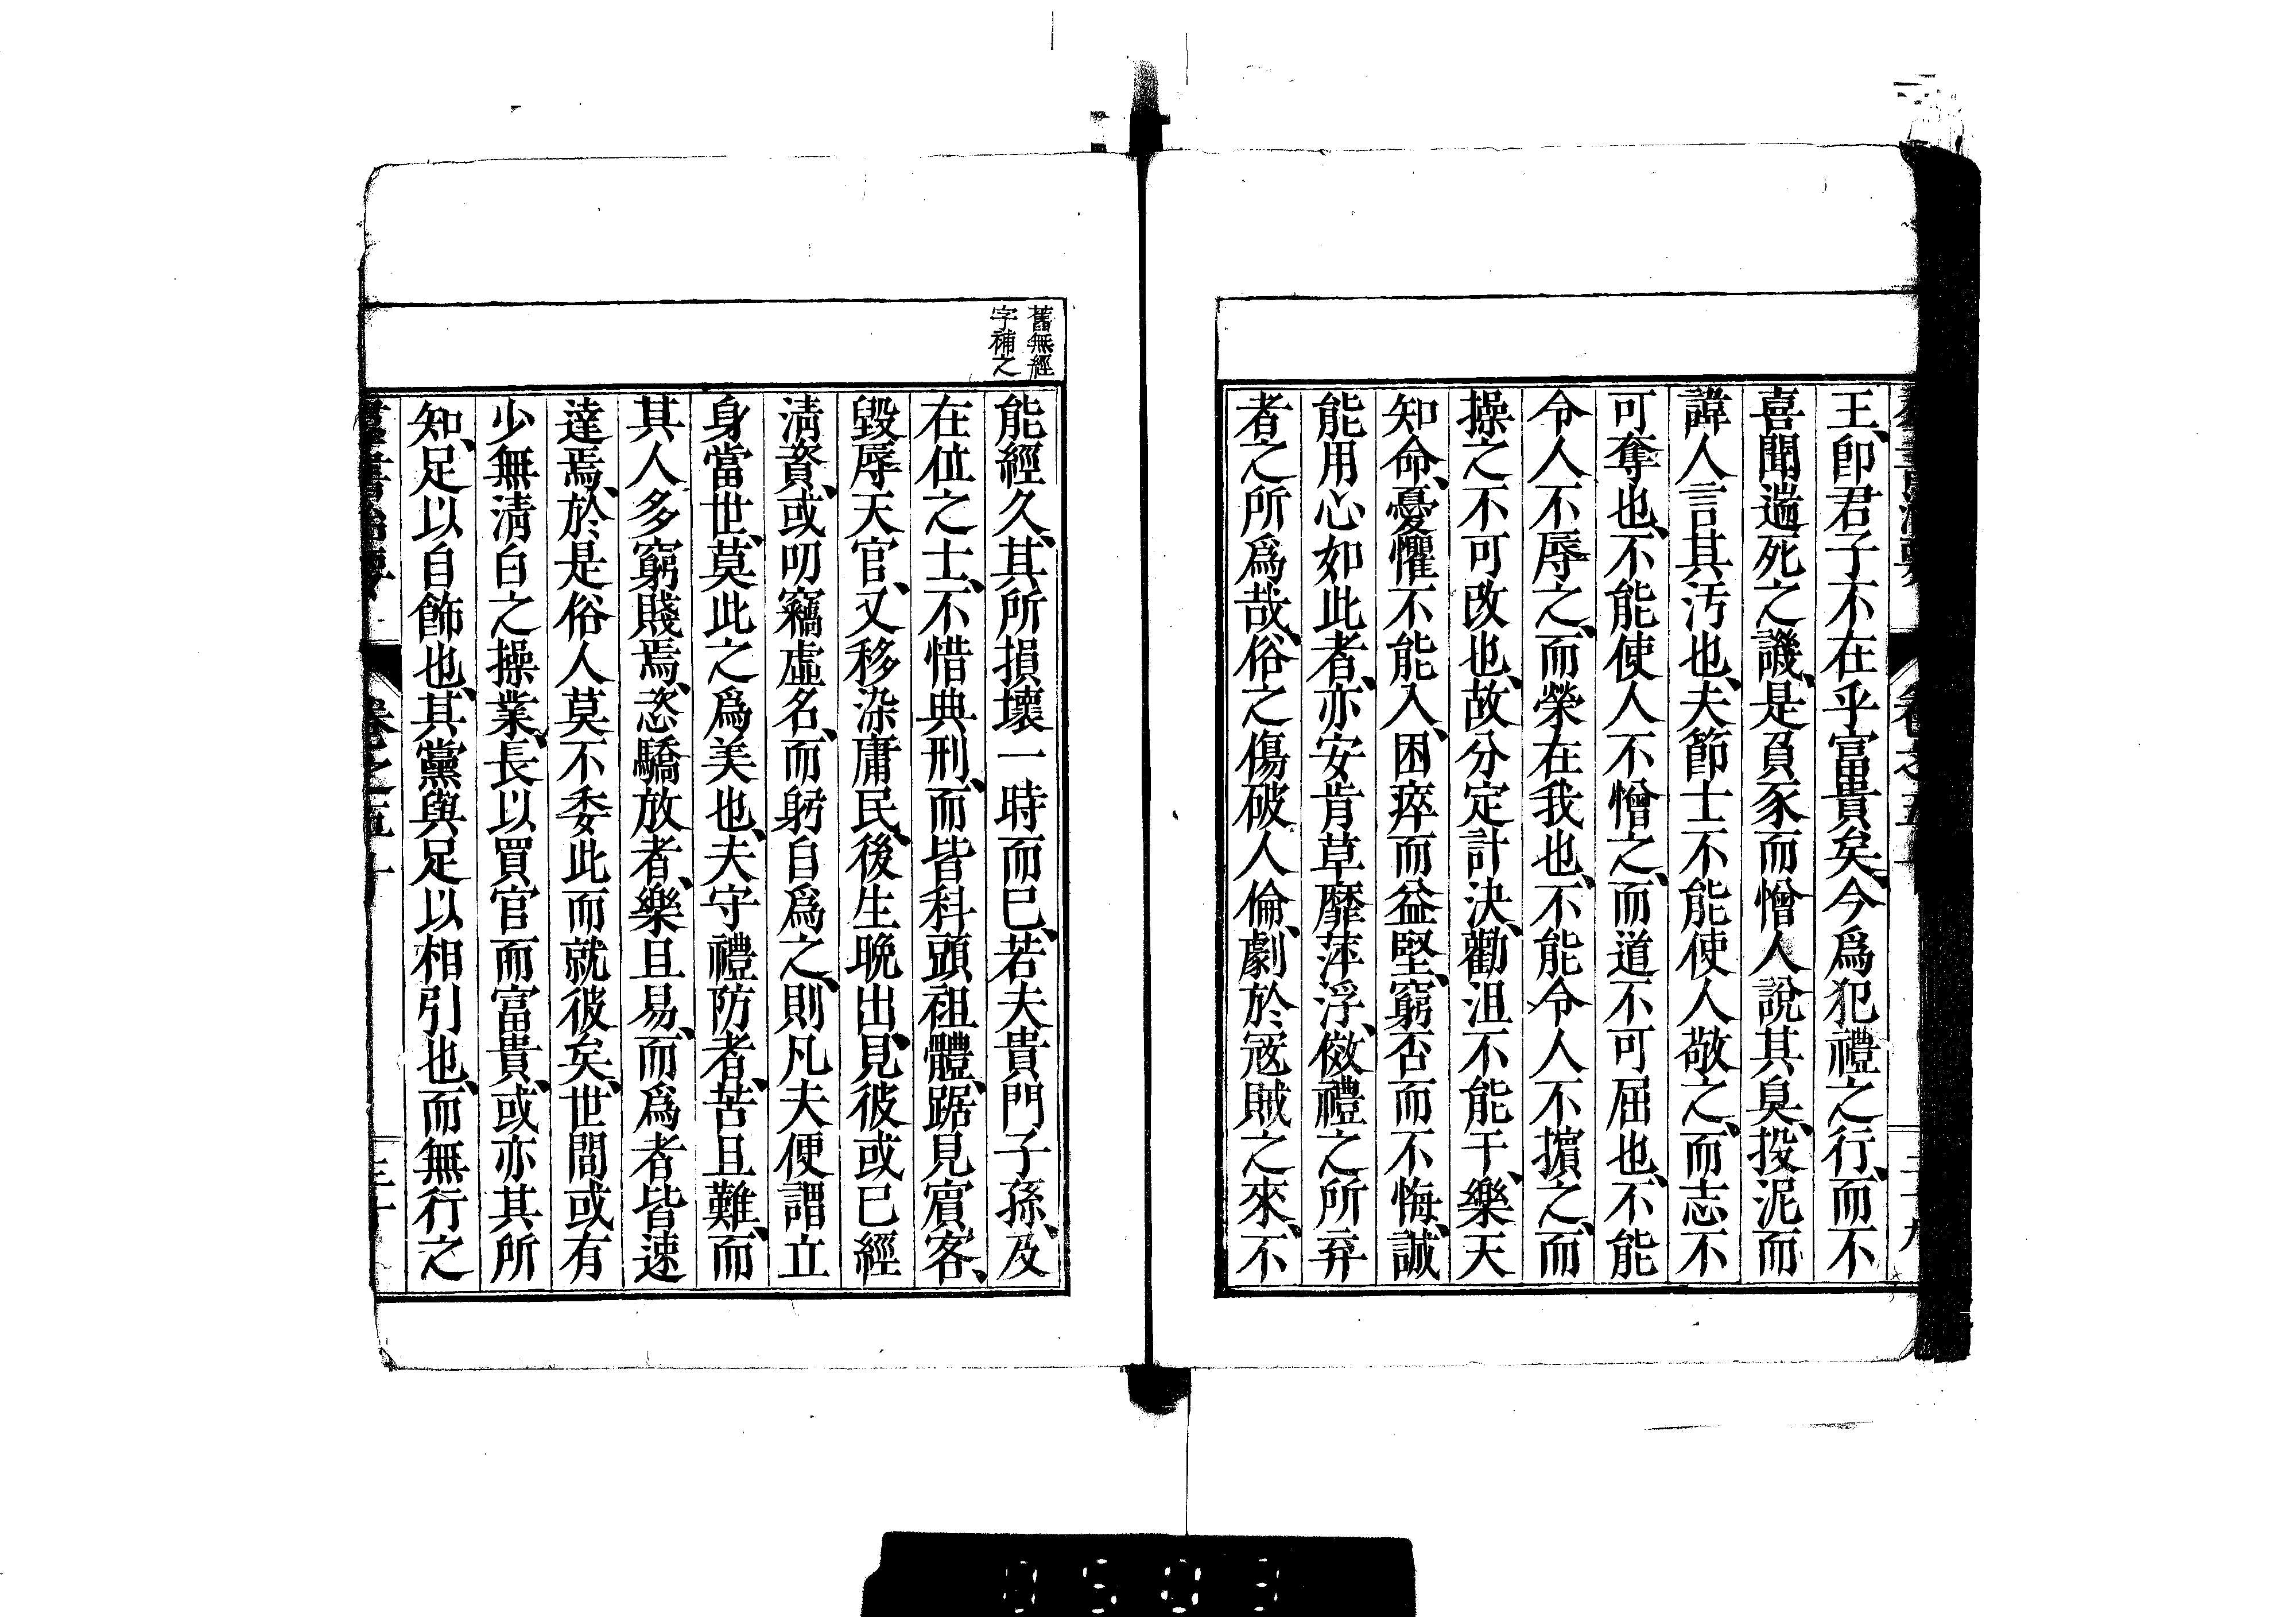 王、卽君子不在乎富貴矣、今爲犯禮之行、而不
喜聞遄死之譏、是負豕而憎人說其臭、投泥而
諱人言其汚也、夫節士不能使人敬之、而志不
可奪也、不能使人不憎之、而道不可屈也、不能
令人不辱之、而榮在我也、不能令人不擯之、而
操之不可改也、故分定計決、勸沮不能干、樂天
知命、憂懼不能入、困瘁而益堅、窮否而不悔、誠
能用心如此者、亦安肯草靡萍浮、傚禮之所弃
者之所爲哉、俗之傷破人倫、劇於寇賊之來、不
舊無經
字補之
能經久、其所損壞一時而已、若夫貴門子孫、及
在位之士、不惜典刑、而皆科頭袒體、踞見賓客、
毀辱天官、又移染庸民、後生晩出、見彼或已經
淸資、或叨竊虛名、而躬自爲之、則凡夫便謂立
身當世、莫此之爲美也、夫守禮防者、苦且難、而
其人多窮賤焉、恣驕放者、樂且易、而爲者皆速
達焉、於是俗人莫不委此而就彼矣、世間或有
少無淸白之操業、長以買官而富貴、或亦其所
知、足以自飾也、其黨與足以相引也、而無行之
羣書治要 卷之五十 三十